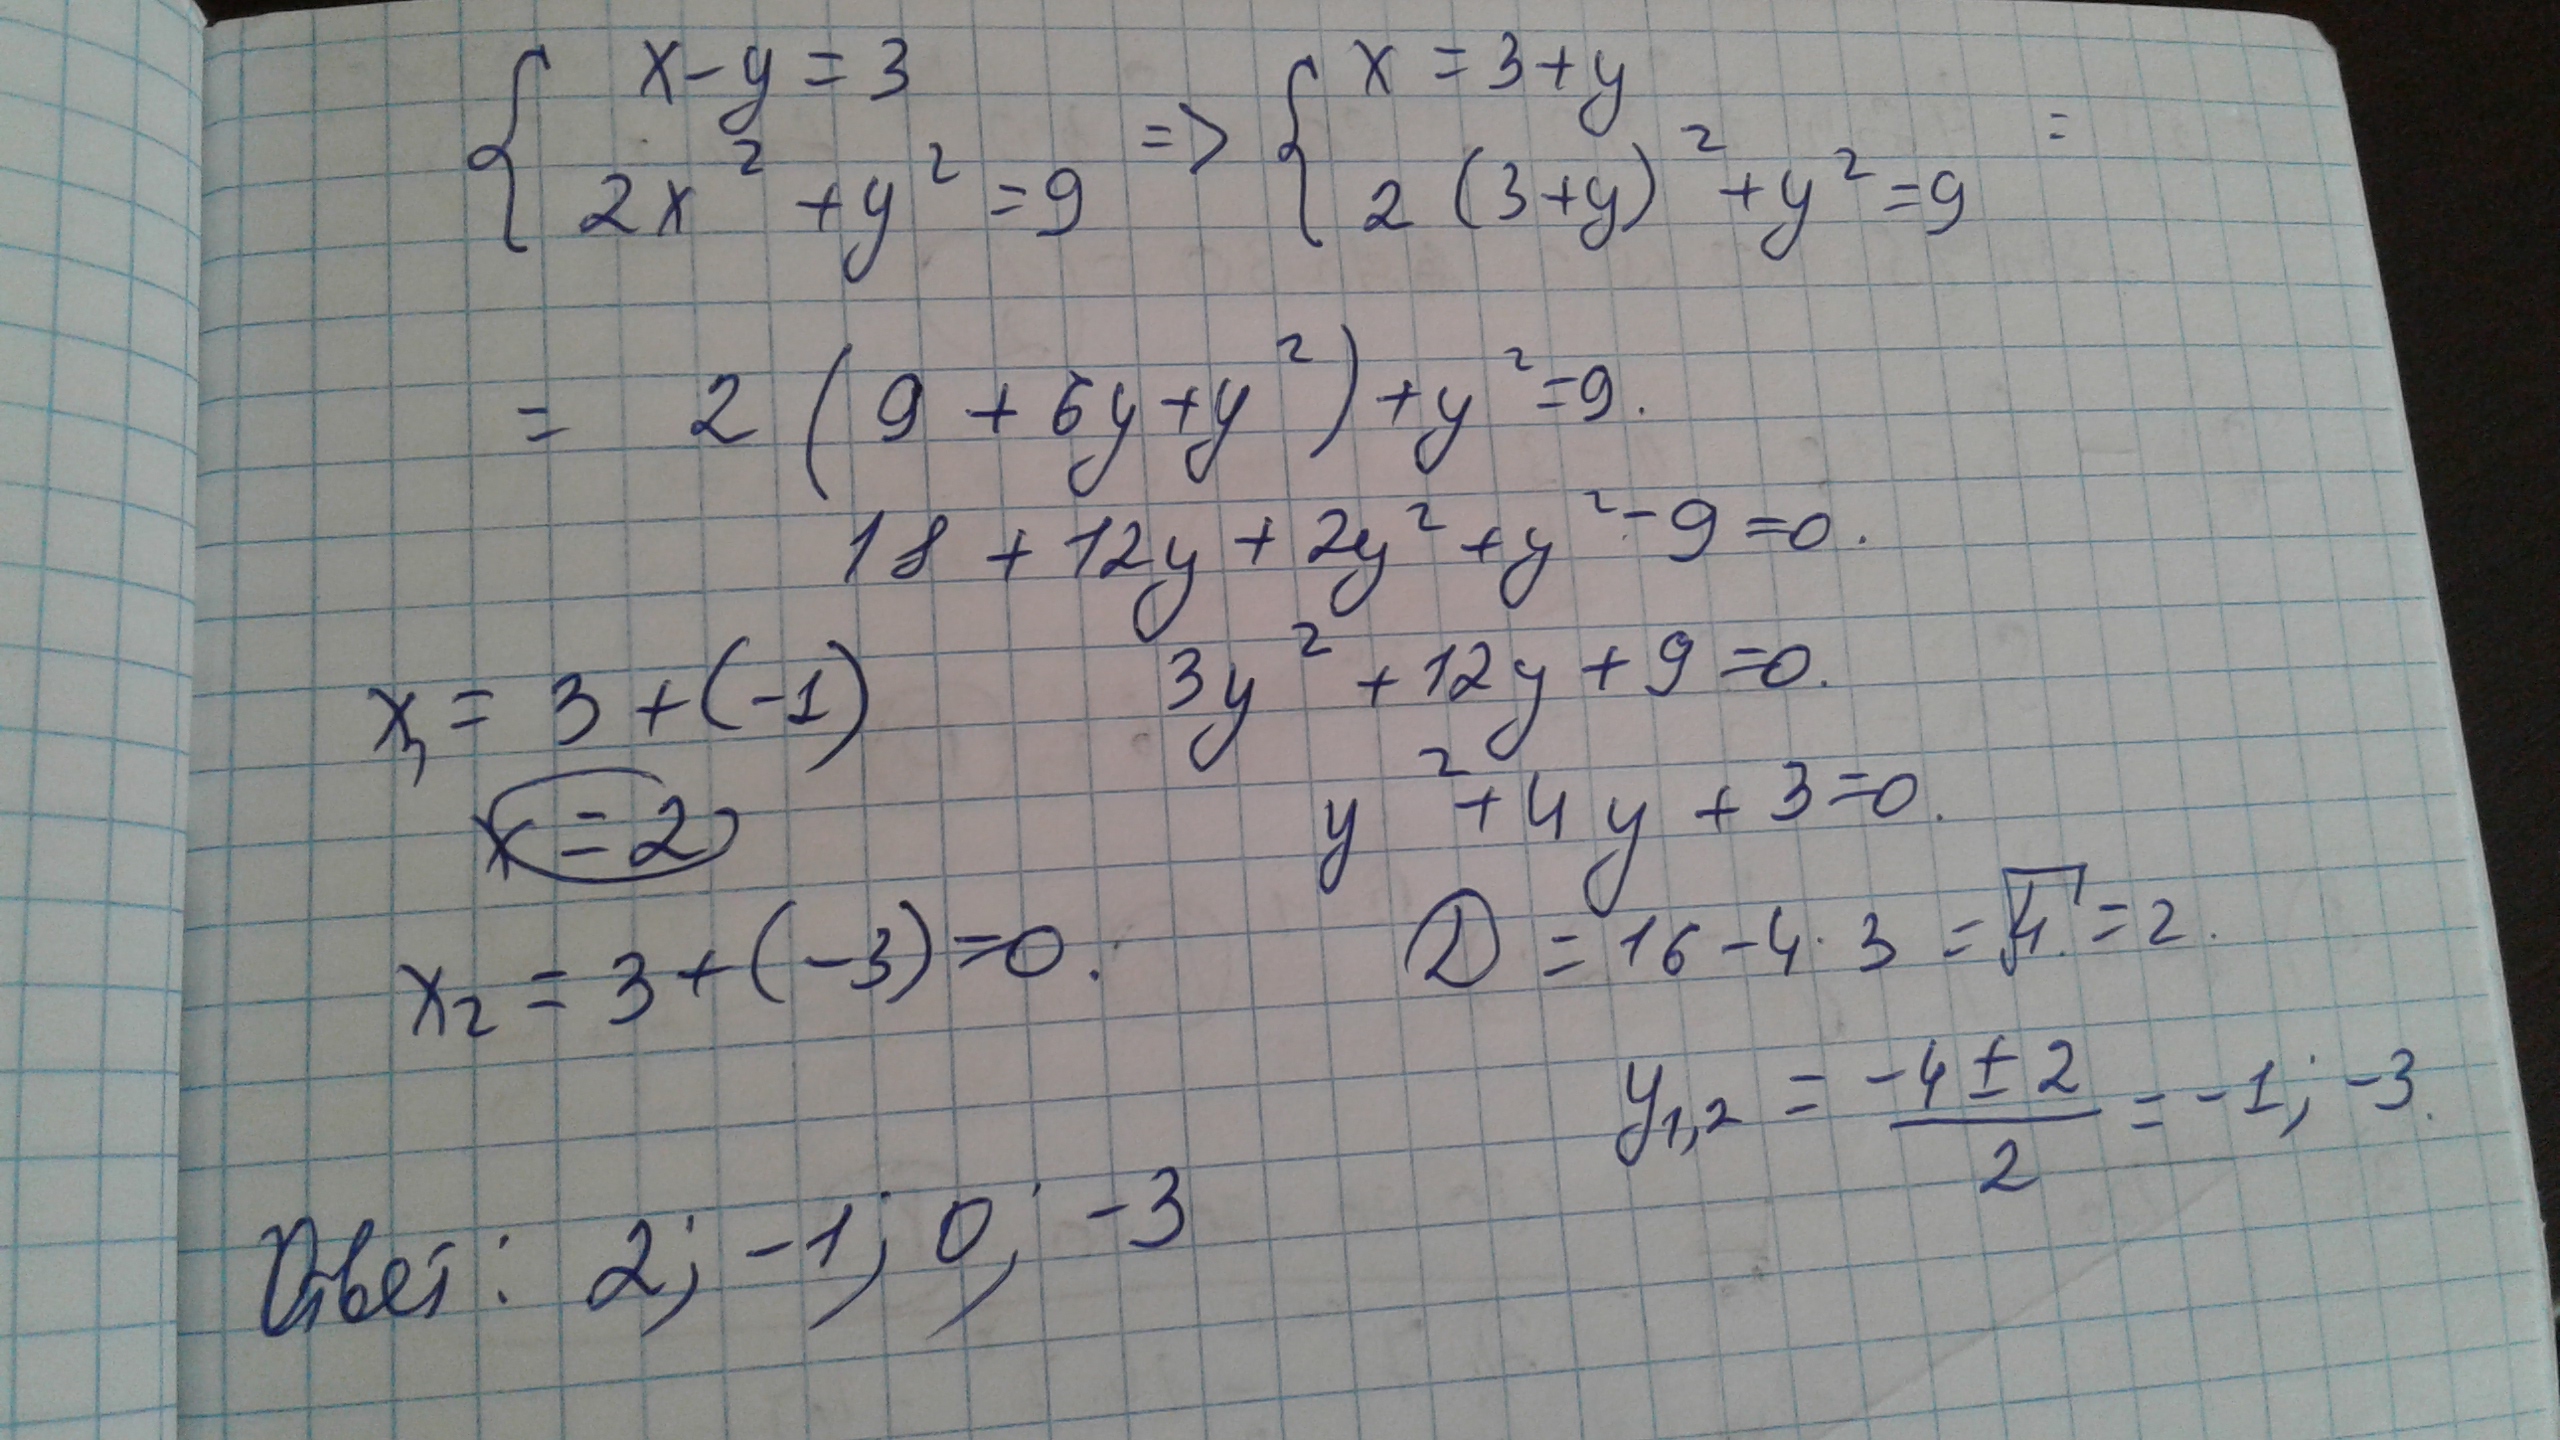 { x - y = 3 => { x = 3 + y
2x² + y² = 9 2 (3+y)² + y² = 9 =
= 2 (9 + 6y + y²) + y² = 9.
18 + 12y + 2y² + y² - 9 = 0.
x₁ = 3 + (-1) 3y² + 12y + 9 = 0.
x = 2 y² + 4y + 3 = 0.
x₂ = 3 + (-3) = 0. D = 16 - 4 · 3 = √4 = 2.
y₁,₂ = (-4 ± 2)/2 = -1; -3.
Ответ: 2; -1; 0; -3